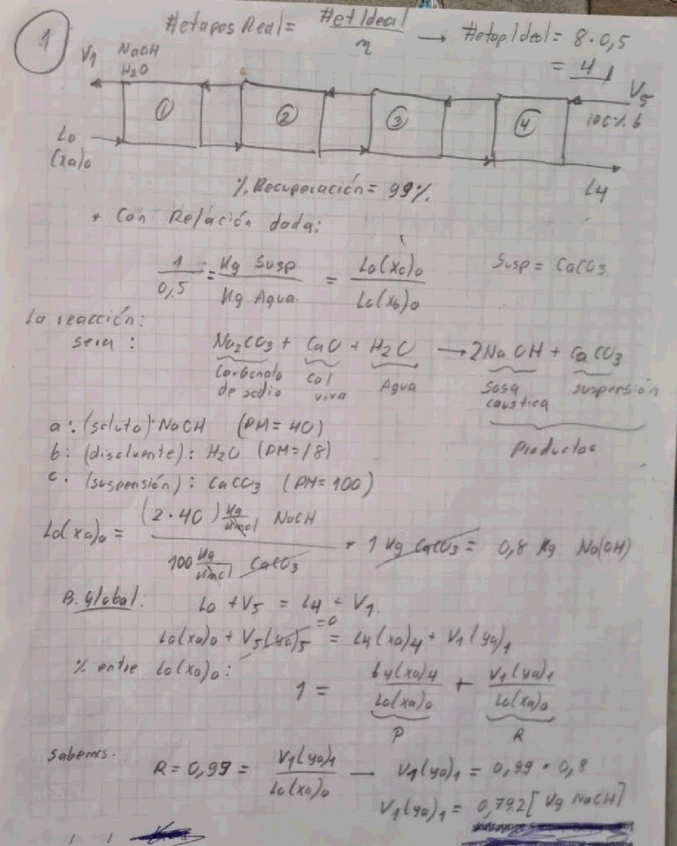 1
#etapas Real = #et Ideal / η → #etap Ideal = 8 · 0,5
= 4
V1 NaOH
H2O
V5
① ② ③ ④
100% b
Lo
(xa)o
L4
% Recuperación = 99%.
* Con Relación dada:
1 / 0,5 = Kg Susp / Kg Agua = Lo(xc)o / Lo(xb)o
Susp = CaCO3
La reacción:
sera: Na2CO3 + CaO + H2O → 2NaOH + CaCO3
Carbonato de sodio
Cal viva
Agua
Sosa caustica
suspensión
Productos
a: (soluto): NaOH (PM = 40)
b: (disolvente): H2O (PM = 18)
c: (suspensión): CaCO3 (PM = 100)
Lo(xa)o = (2 · 40) Kg/Kmol NaOH / 100 Kg/Kmol CaCO3 * 1 Kg CaCO3 = 0,8 Kg Na(OH)
B. Global: Lo + V5 = L4 + V1.
Lo(xa)o + V5(ya)5 =0 = L4(xa)4 + V1(ya)1
% entre Lo(xa)o:
1 = L4(xa)4 / Lo(xa)o + V1(ya)1 / Lo(xa)o
P R
Sabems.
R = 0,99 = V1(ya)1 / Lo(xa)o → V1(ya)1 = 0,99 * 0,8
V1(ya)1 = 0,792 [Kg NaOH]